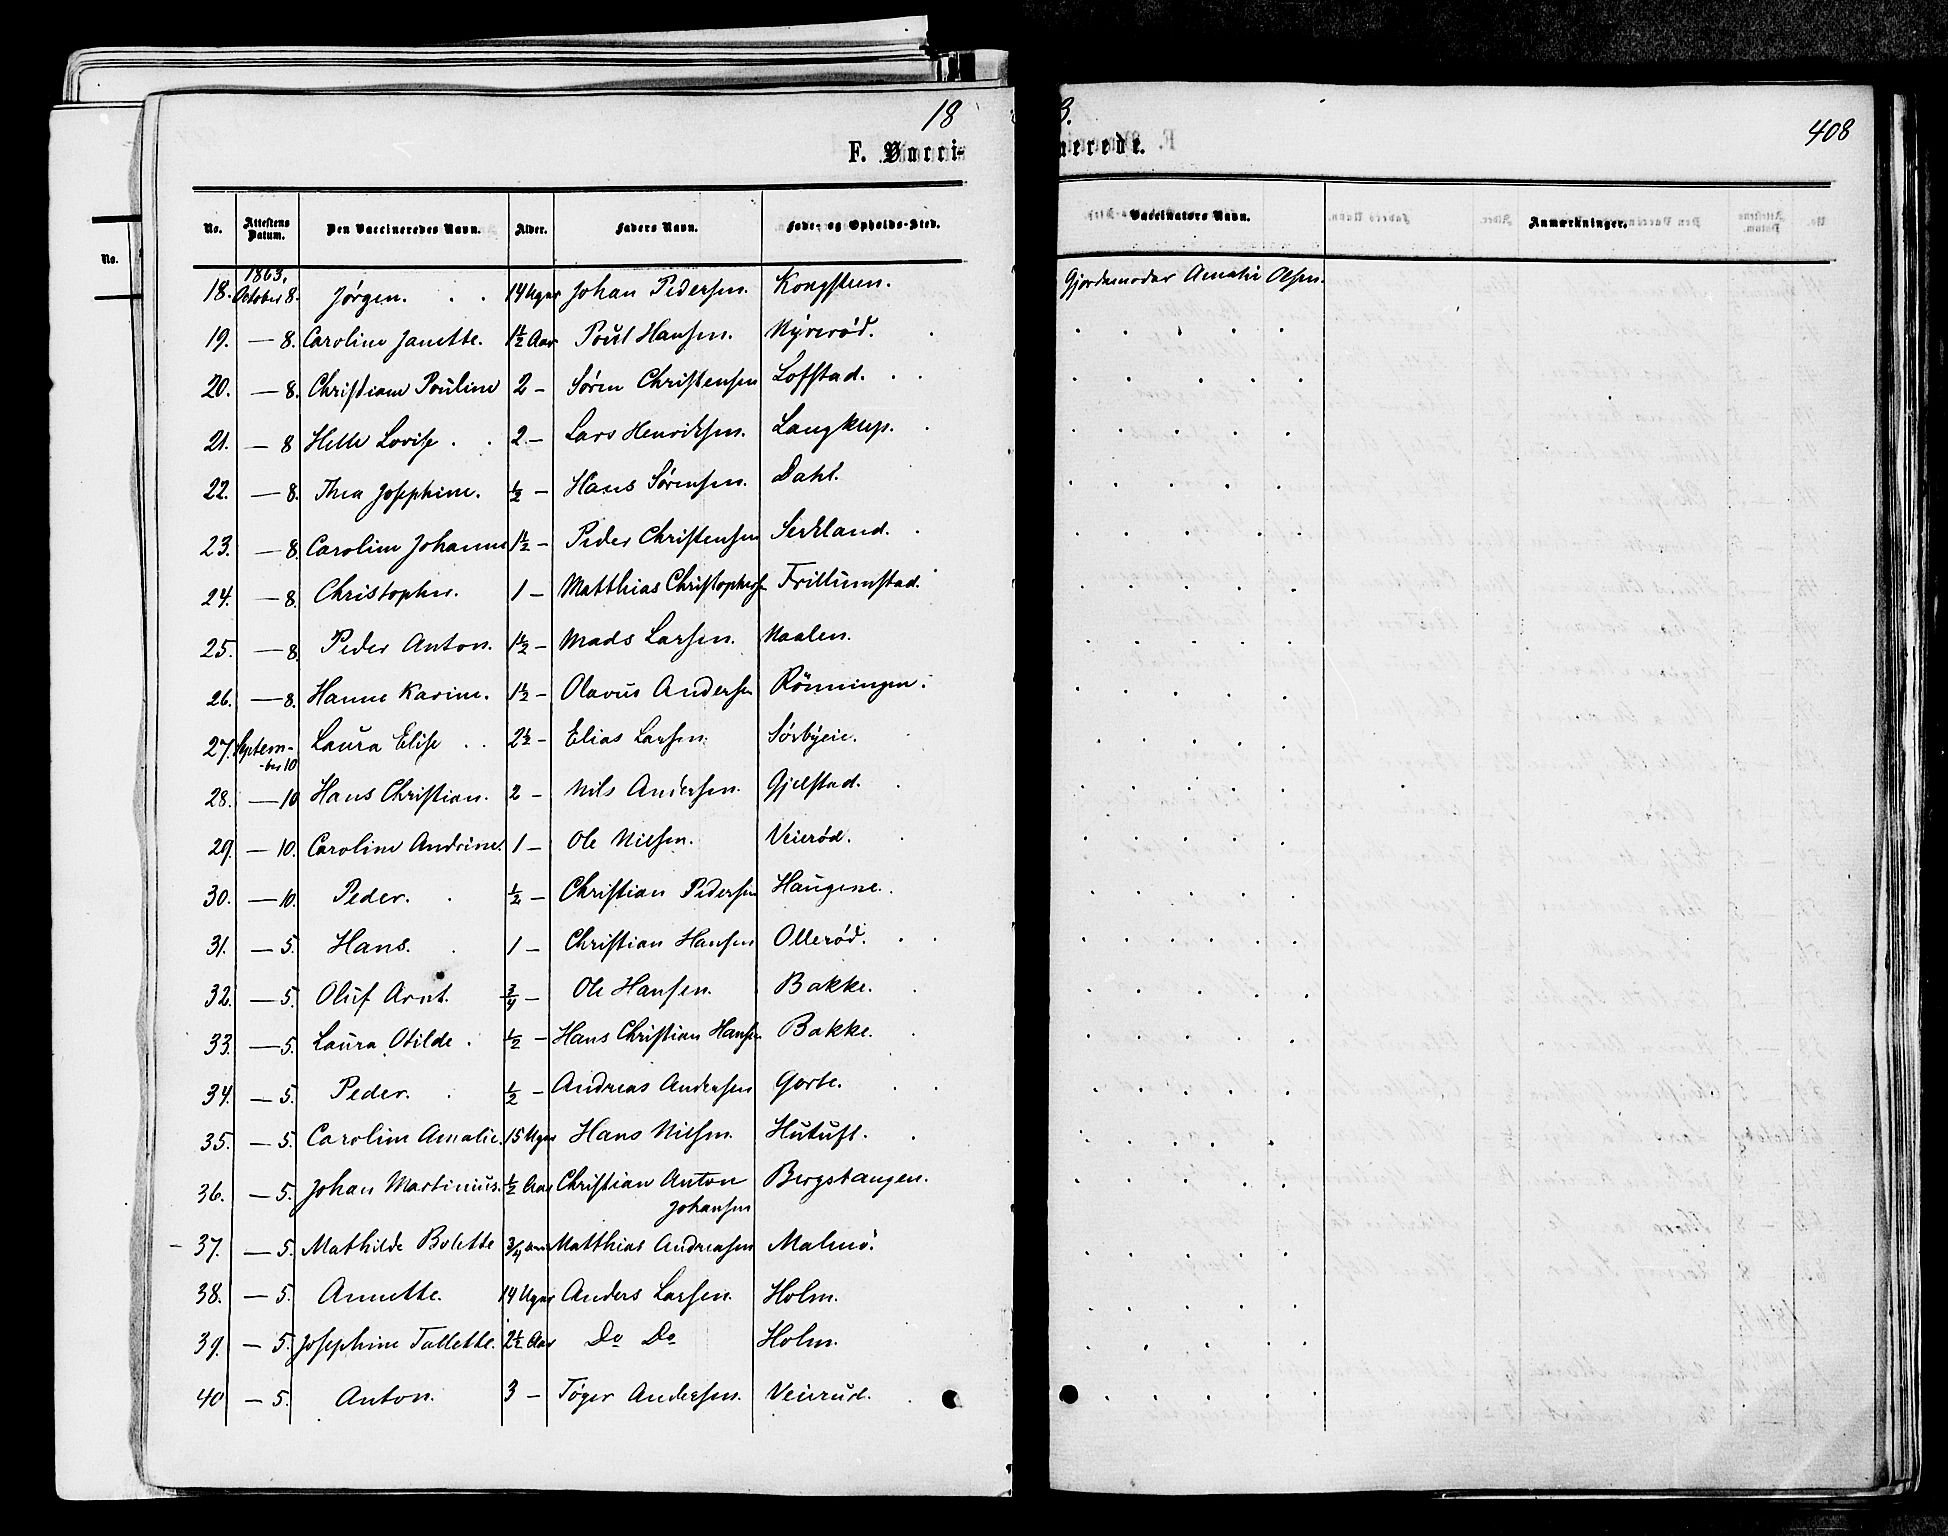 18
3.
408
F. Vacci-
nerede.
No. Attestens Datum. Den Vaccineredes Navn. Alder. Faders Navn. Føde- og Opholds-Sted. Vaccinators Navn. Anmærkninger.
No.
1863.
18. October 8. Jørgen. 14 Uger Johan Pedersen. Kongsteen. Gjordemoder Amalie Olsen.
19. — 8. Caroline Janette. 1½ Aar Poul Hansen. Nÿverød.
20. — 8. Christiane Pouline 2 — Søren Christensen Lofstad.
21. — 8 Helle Lovise. 2 — Lars Henriksen. Langkup.
22. — 8. Thea Josephine. ½ — Hans Sørensen. Dahl.
23. — 8. Caroline Johanne 1½ — Peder Christensen Serkland.
24. — 8. Christopher. 1 — Matthias Christophers Trillumstad.
25. — 8. Peder Anton. 1½ — Mads Larsen. Naalen.
26. — 8. Hanne Karine. 1½ — Olavus Andersen Rönningen.
27. Septem-
ber 10 Laura Elise 2½ — Elias Larsen. Sörbÿeie.
28. — 10 Hans Christian. 2 — Nils Andersen. Gjelstad.
29. — 10. Caroline Andrine. 1 — Ole Nilsen. Veierød.
30. — 10. Peder. ½ — Christian Pedersen Haugene.
31. — 5. Hans. 1 — Christian Hansen Ollerød.
32. — 5. Oluf Arnt. ¾ — Ole Hansen. Bakke.
33. — 5. Laura Otilde. ½ — Hans Christian Hansen Bakke.
34. — 5. Peder. ½ — Andreas Andersen Gorte.
35. — 5. Caroline Amalie. 15 Uger Hans Nilsen. Hutuft.
36. — 5. Johan Martinius. ½ Aar Christian Anton Bergstangen.
Johansen
37. — 5. Mathilde Bolette ¾ Matthias Andreasen Malmö.
38. — 5. Annette. 14 Uger Anders Larsen. Holm.
39. — 5. Josephine Tallette. 2½ Aar Do Do Holm.
40 — 5. Anton. 3 — Tøger Andersen. Veierud.